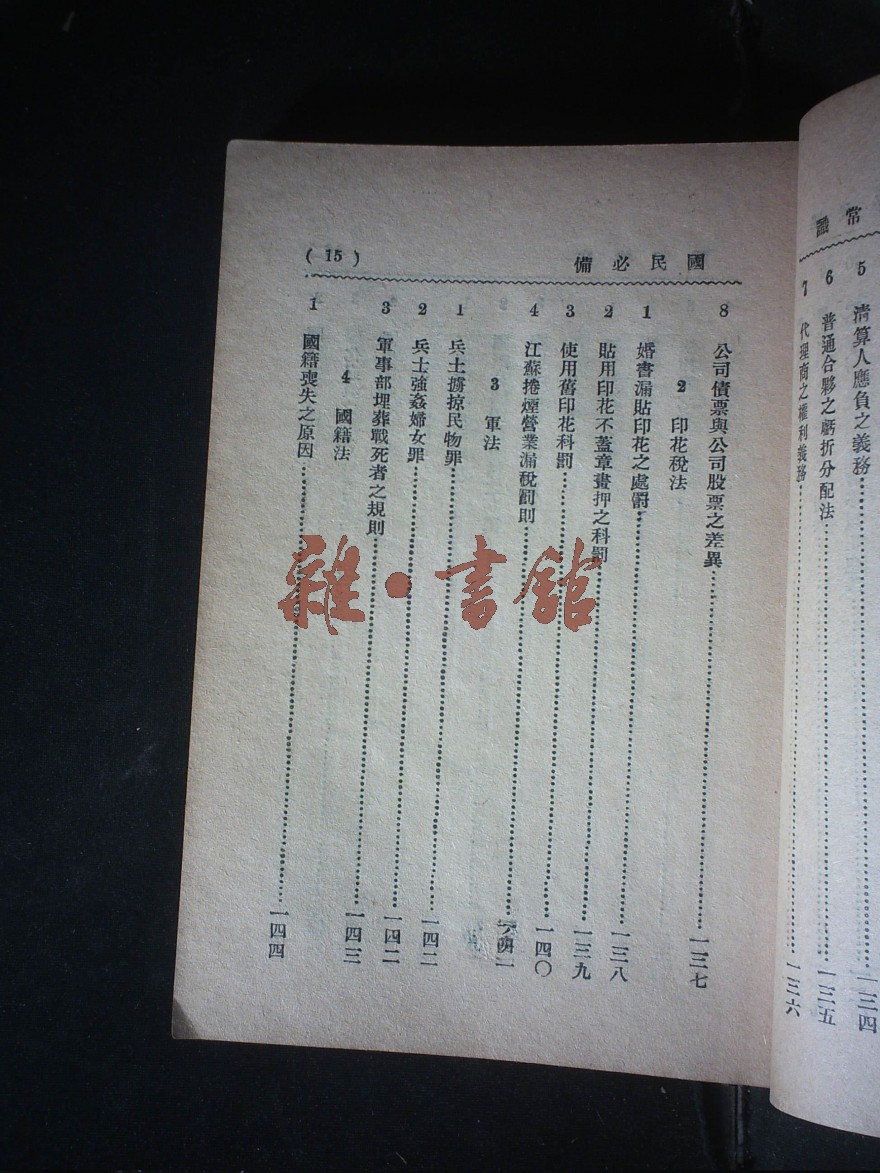 常識
5 清算人應負之義務 一三四
6 普通合夥之虧折分配法 一三五
7 代理商之權利義務 一三六
國民必備
(15)
8 公司債票與公司股票之差異 一三七
2 印花稅法
1 婚書漏貼印花之處罰 一三八
2 貼用印花不蓋章畫押之科罰 一三九
3 使用舊印花科罰 一四〇
4 江蘇捲煙營業漏稅罰則
3 軍法
1 兵士擄掠民物罪 一四二
2 兵士強姦婦女罪 一四二
3 軍事部埋葬戰死者之規則 一四三
4 國籍法
1 國籍喪失之原因 一四四
雜·書館